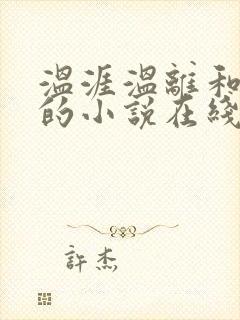 温涯温離和
的小说在綫
許杰